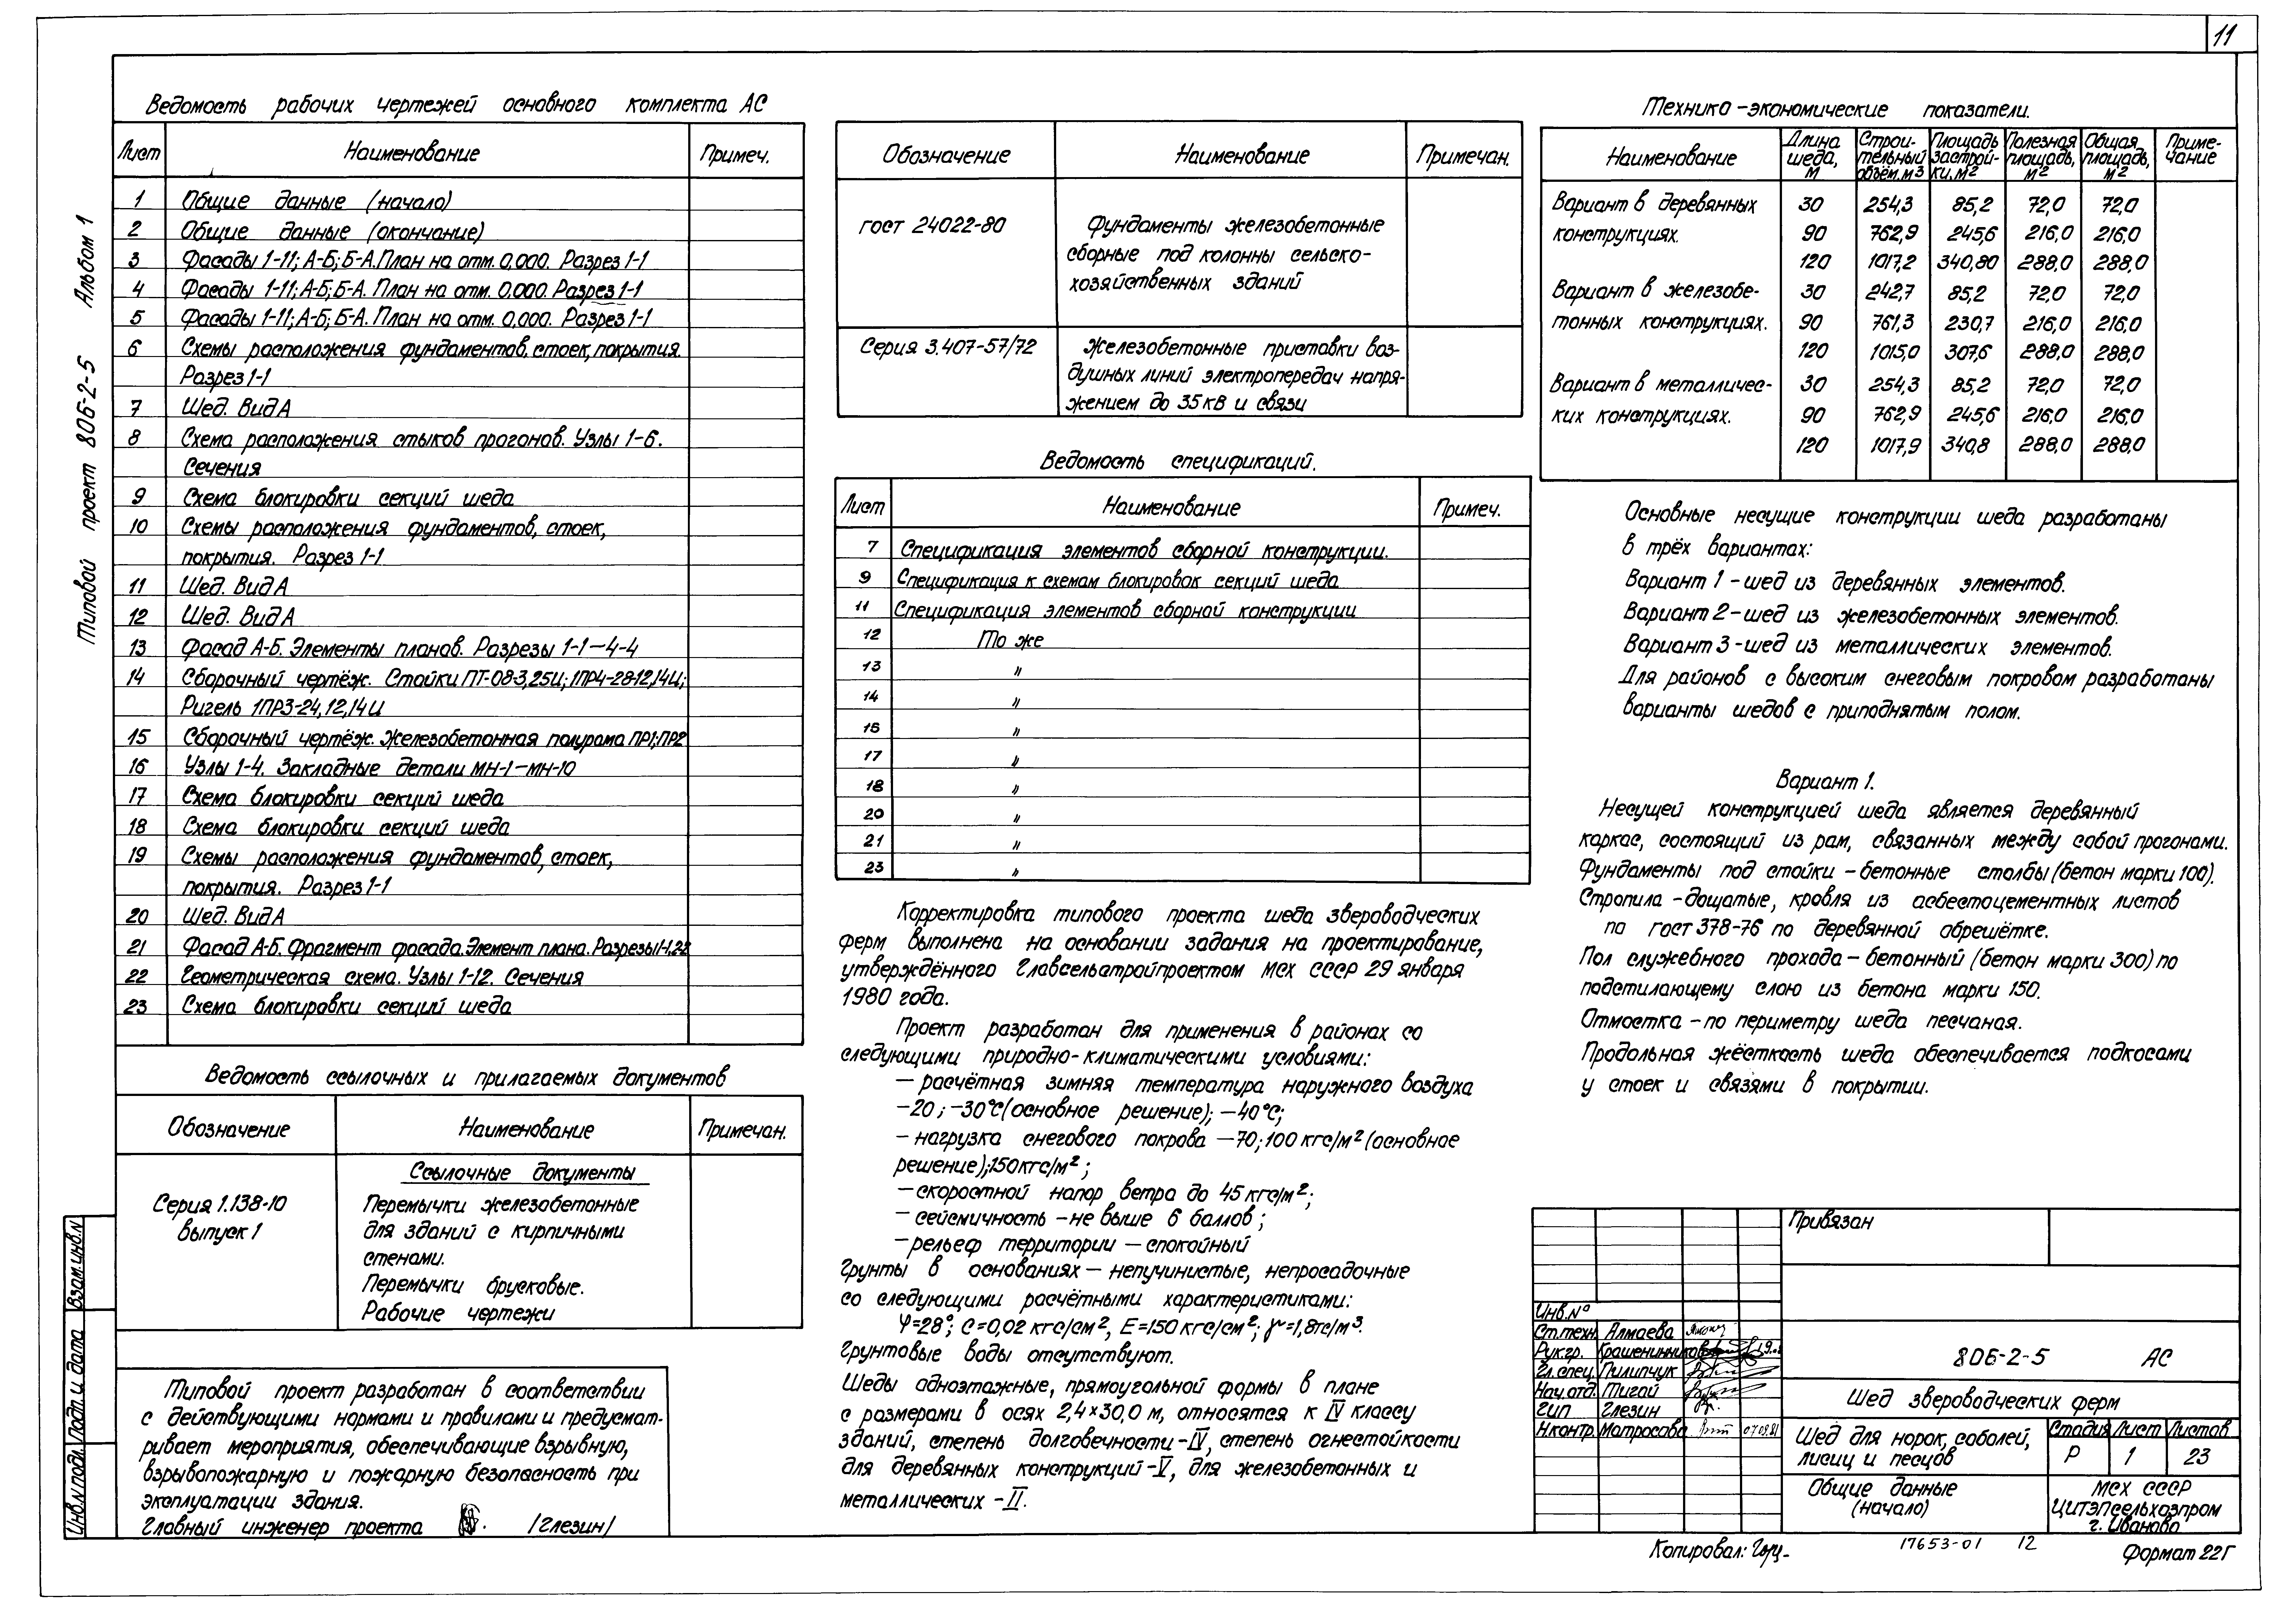 11
Альбом 1
Типовой проект 806-2-5
Ведомость рабочих чертежей основного комплекта АС
Лист Наименование Примеч.
1 Общие данные (начало)
2 Общие данные (окончание)
3 Фасады 1-11; А-Б; Б-А. План на отм. 0,000. Разрез 1-1
4 Фасады 1-11; А-Б; Б-А. План на отм. 0.000. Разрез 1-1
5 Фасады 1-11; А-Б; Б-А. План на отм. 0,000. Разрез 1-1
6 Схемы расположения фундаментов, стоек, покрытия.
Разрез 1-1
7 Шед. Вид А
8 Схема расположения стыков прогонов. Узлы 1-6.
Сечения
9 Схема блокировки секций шеда
10 Схемы расположения фундаментов, стоек,
покрытия. Разрез 1-1
11 Шед. Вид А
12 Шед. Вид А
13 Фасад А-Б. Элементы планов. Разрезы 1-1—4-4
14 Сборочный чертёж. Стойки ПТ-08-3,25Ц; 1ПР4-28-12,14Ц;
Ригель 1ПР3-24,12,14Ц
15 Сборочный чертёж. Железобетонная полурама ПР1; ПР2
16 Узлы 1-4. Закладные детали МН-1—МН-10
17 Схема блокировки секций шеда
18 Схема блокировки секций шеда
19 Схемы расположения фундаментов, стоек,
покрытия. Разрез 1-1
20 Шед. Вид А
21 Фасад А-Б. Фрагмент фасада. Элемент плана. Разрезы 1-1, 2-2
22 Геометрическая схема. Узлы 1-12. Сечения
23 Схема блокировки секций шеда
Ведомость ссылочных и прилагаемых документов
Обозначение Наименование Примечан.
Ссылочные документы
Серия 1.138-10 Перемычки железобетонные
выпуск 1 для зданий с кирпичными
стенами.
Перемычки брусковые.
Рабочие чертежи
Типовой проект разработан в соответствии
с действующими нормами и правилами и предусмат-
ривает мероприятия, обеспечивающие взрывную,
взрывопожарную и пожарную безопасность при
эксплуатации здания.
Главный инженер проекта /Глезин/
Взам.инв.N
Подп. и дата
Инв.N подл.
Обозначение Наименование Примечан.
ГОСТ 24022-80 Фундаменты железобетонные
сборные под колонны сельско-
хозяйственных зданий
Серия 3.407-57/72 Железобетонные приставки воз-
душных линий электропередач напря-
жением до 35 кВ и связи
Ведомость спецификаций.
Лист Наименование Примеч.
7 Спецификация элементов сборной конструкции.
9 Спецификация к схемам блокировок секций шеда
11 Спецификация элементов сборной конструкции
12 То же
13 "
14 "
15 "
17 "
18 "
20 "
21 "
23 "
Корректировка типового проекта шеда звероводческих
ферм выполнена на основании задания на проектирование,
утверждённого Главсельстройпроектом МСХ СССР 29 января
1980 года.
Проект разработан для применения в районах со
следующими природно-климатическими условиями:
— расчётная зимняя температура наружного воздуха
-20; -30°С (основное решение); -40°С;
— нагрузка снегового покрова — 70; 100 кгс/м² (основное
решение); 150 кгс/м²;
— скоростной напор ветра до 45 кгс/м²;
— сейсмичность - не выше 6 баллов;
— рельеф территории — спокойный
Грунты в основаниях — непучинистые, непросадочные
со следующими расчётными характеристиками:
φ=28°; С=0,02 кгс/см², Е=150 кгс/см²; γ=1,8тс/м³.
Грунтовые воды отсутствуют.
Шеды одноэтажные, прямоугольной формы в плане
с размерами в осях 2,4×30,0 м, относятся к IV классу
зданий, степень долговечности - IV, степень огнестойкости
для деревянных конструкций - V, для железобетонных и
металлических - II.
Технико-экономические показатели.
Наименование Длина шеда, м Строительный объём, м³ Площадь застройки, м² Полезная площадь, м² Общая площадь, м² Примечание
Вариант в деревянных 30 254,3 85,2 72,0 72,0
конструкциях. 90 762,9 245,6 216,0 216,0
120 1017,2 340,80 288,0 288,0
Вариант в железобе- 30 242,7 85,2 72,0 72,0
тонных конструкциях. 90 761,3 230,7 216,0 216,0
120 1015,0 307,6 288,0 288,0
Вариант в металличес- 30 254,3 85,2 72,0 72,0
ких конструкциях. 90 762,9 245,6 216,0 216,0
120 1017,9 340,8 288,0 288,0
Основные несущие конструкции шеда разработаны
в трёх вариантах:
Вариант 1 - шед из деревянных элементов.
Вариант 2 - шед из железобетонных элементов.
Вариант 3 - шед из металлических элементов.
Для районов с высоким снеговым покровом разработаны
варианты шедов с приподнятым полом.
Вариант 1.
Несущей конструкцией шеда является деревянный
каркас, состоящий из рам, связанных между собой прогонами.
Фундаменты под стойки - бетонные столбы (бетон марки 100).
Стропила - дощатые, кровля из асбестоцементных листов
по ГОСТ 378-76 по деревянной обрешётке.
Пол служебного прохода - бетонный (бетон марки 300) по
подстилающему слою из бетона марки 150.
Отмостка - по периметру шеда песчаная.
Продольная жёсткость шеда обеспечивается подкосами
у стоек и связями в покрытии.
Привязан
Инв.N°
Ст.техн. Алмаева
Рук.гр. Крашенинников
Гл.спец. Пилипчук
Нач.отд. Тигай
ГИП Глезин
Н.контр. Матросова 07.09.81
806-2-5 АС
Шед звероводческих ферм
Шед для норок, соболей,
лисиц и песцов
Стадия Лист Листов
Р 1 23
Общие данные
(начало)
МСХ СССР
ЦИТЭПсельхозпром
г. Иваново
Копировал:
17653-01 12
Формат 22Г